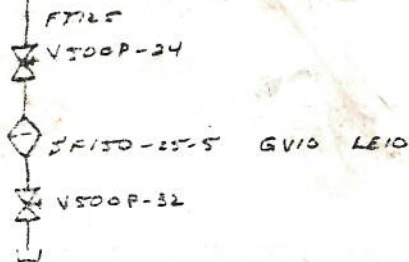 FT125
V500P-24
SF150-25-5 GV10 LE10
V500P-32